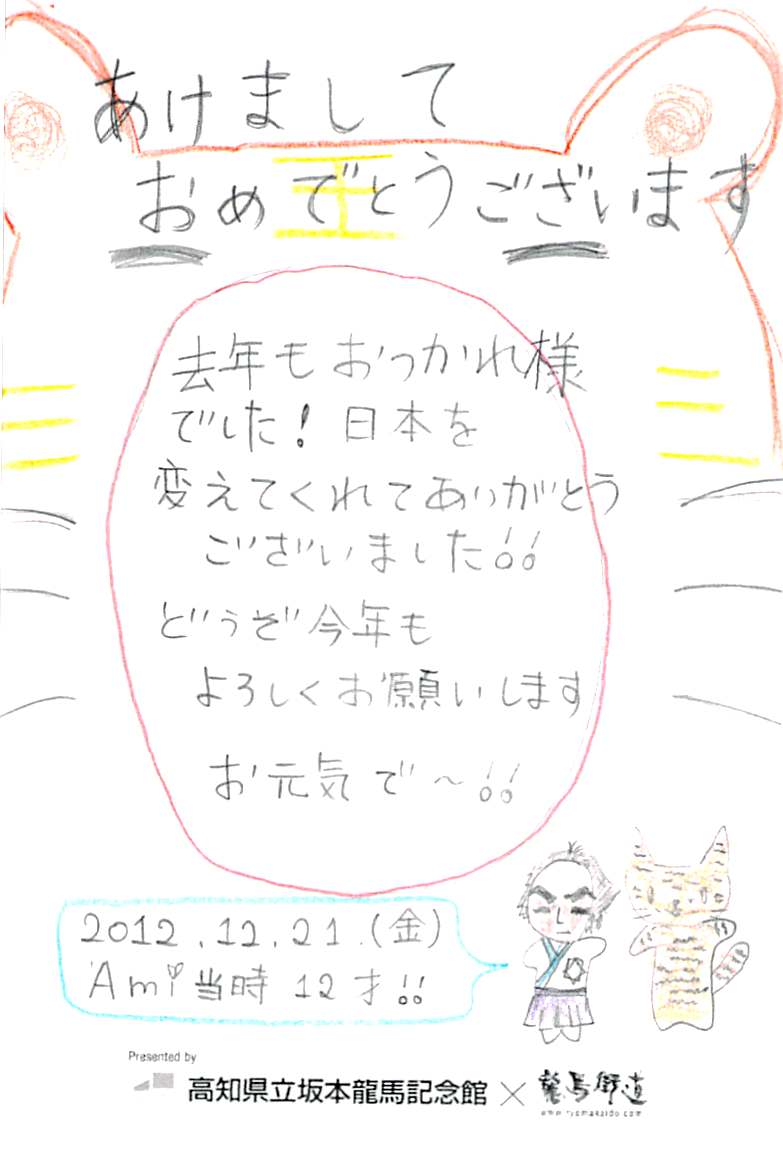 あけまして
おめでとうございます
王
去年もおつかれ様
でした！日本を
変えてくれてありがとう
ございました!!
どうぞ今年も
よろしくお願いします
お元気で～!!
2012.12.21.(金)
Ami当時12才!!
Presented by
高知県立坂本龍馬記念館×龍馬街道
www.ryomakaido.com